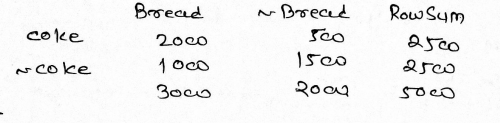 Bread ~Bread RowSum
coke 2000 500 2500
~coke 1000 1500 2500
3000 2000 5000